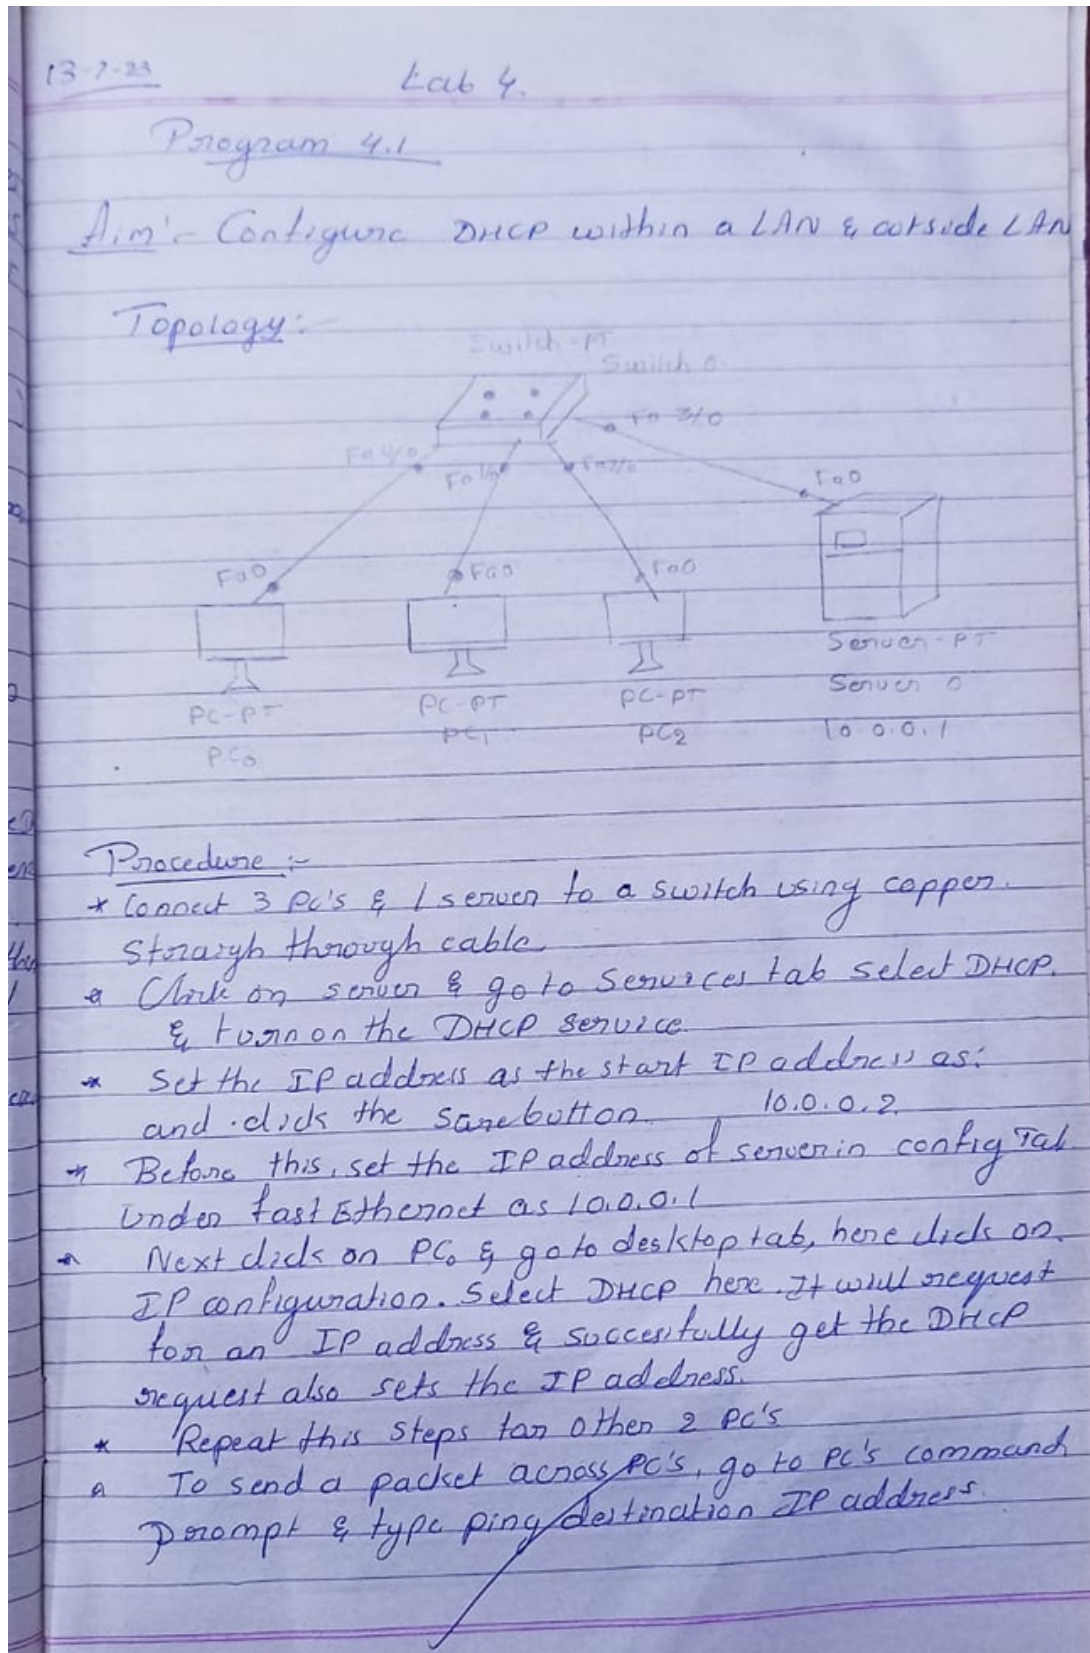 13-7-23
Lab 4.
Program 4.1
Aim:- Configure DHCP within a LAN & outside LAN
Topology:-
Switch-PT
Switch 0
Fa 3/0
Fa 0/0
Fa 1/0
Fa 2/0
Fa0
Fa0
Fa0
Fa0
Server-PT
Server 0
10.0.0.1
PC-PT
PC0
PC-PT
PC1
PC-PT
PC2
Procedure :-
* Connect 3 PC's & 1 server to a switch using copper.
Straigh through cable.
* Click on server & go to Services tab select DHCP.
& turn on the DHCP service.
* Set the IP address as the start IP address as:
and click the save button. 10.0.0.2.
* Before this, set the IP address of server in config Tab
Under fast Ethernet as 10.0.0.1
* Next click on PC0 & go to desktop tab, here click on.
IP configuration. Select DHCP here. It will request
for an IP address & succesfully get the DHCP
request also sets the IP address.
* Repeat this steps for other 2 PC's
* To send a packet across PC's, go to PC's command
prompt & type ping destination IP address.